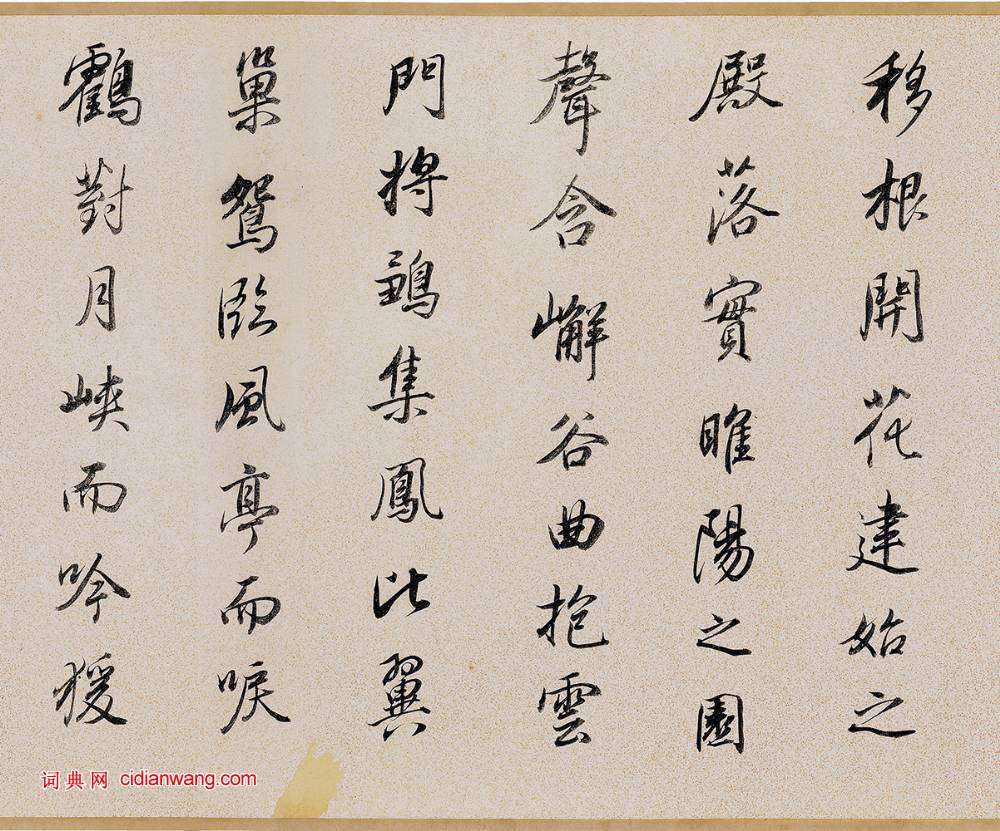 移根開花建始之
殿落實睢陽之園
聲含嶰谷曲抱雲
門將鶵集鳳比翼
巢鴛臨風亭而唳
鶴對月峽而吟猨
词典网 cidianwang.com